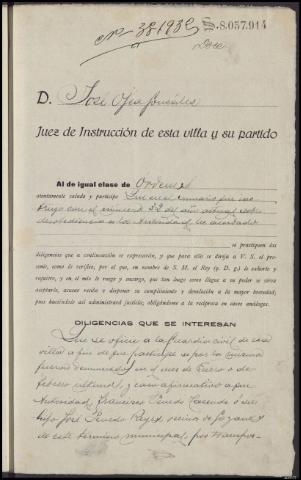 Nº 38-1932
S.8.057.914
Doce
D. José Ojea González
Juez de Instrucción de esta villa y su partido
Al de igual clase de Ordenes
atentamente saluda y participa: Que en el sumario que ins-
truyo con el número 22 del año actual sobre
desobediencia a la Autoridad, he acordado
se practiquen las
diligencias que a continuación se expresarán, y que para ello se dirija a V. S. el pre-
sente, como lo verifico, por el que, en nombre de S. M. el Rey (q. D. g.) le exhorto y
requiero, y en el mío le ruego y encargo, que tan luego como llegue a su poder se sirva
aceptarlo, acusar recibo y disponer su cumplimiento y devolución a la mayor brevedad;
pues haciéndolo así administrará justicia, obligándome a la recíproca en casos análogos.
DILIGENCIAS QUE SE INTERESAN
Que se oficie a la Guardia civil de esa
villa a fin de que participe si por la misma
fueron denunciados en el mes de Enero o de
febrero últimos, y caso afirmativo a que
Autoridad, Francisco Penedo
hijo José Penedo vecinos de
de este término municipal, por transpor-